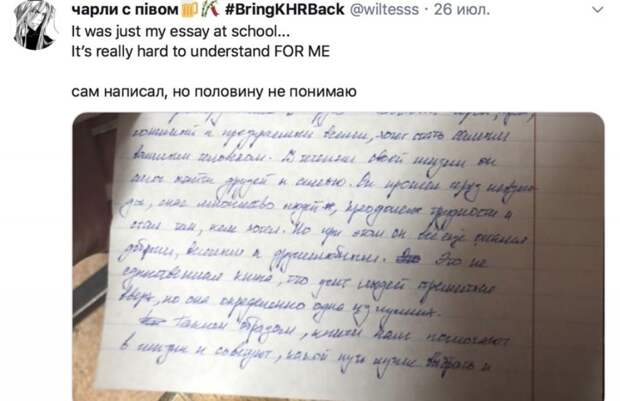 чарли с півом🍺🎋 #BringKHRBack @wiltesss · 26 июл.
It was just my essay at school...
It's really hard to understand FOR ME
сам написал, но половину не понимаю
и презираемый всеми, хочет стать самым
великим человеком. В течение своей жизни он
смог найти друзей и семью. Он прошел через невзго-
ды, спас множество людей, преодолел трудности и
стал тем, кем хотел. Но при этом он все еще остался
добрым, веселым и дружелюбным. Это не
единственная книга, что учит людей стремиться
вверх, но она определенно одна из лучших.
Таким образом, книги нам помогают
в жизни и советуют, какой путь нужно выбрать и